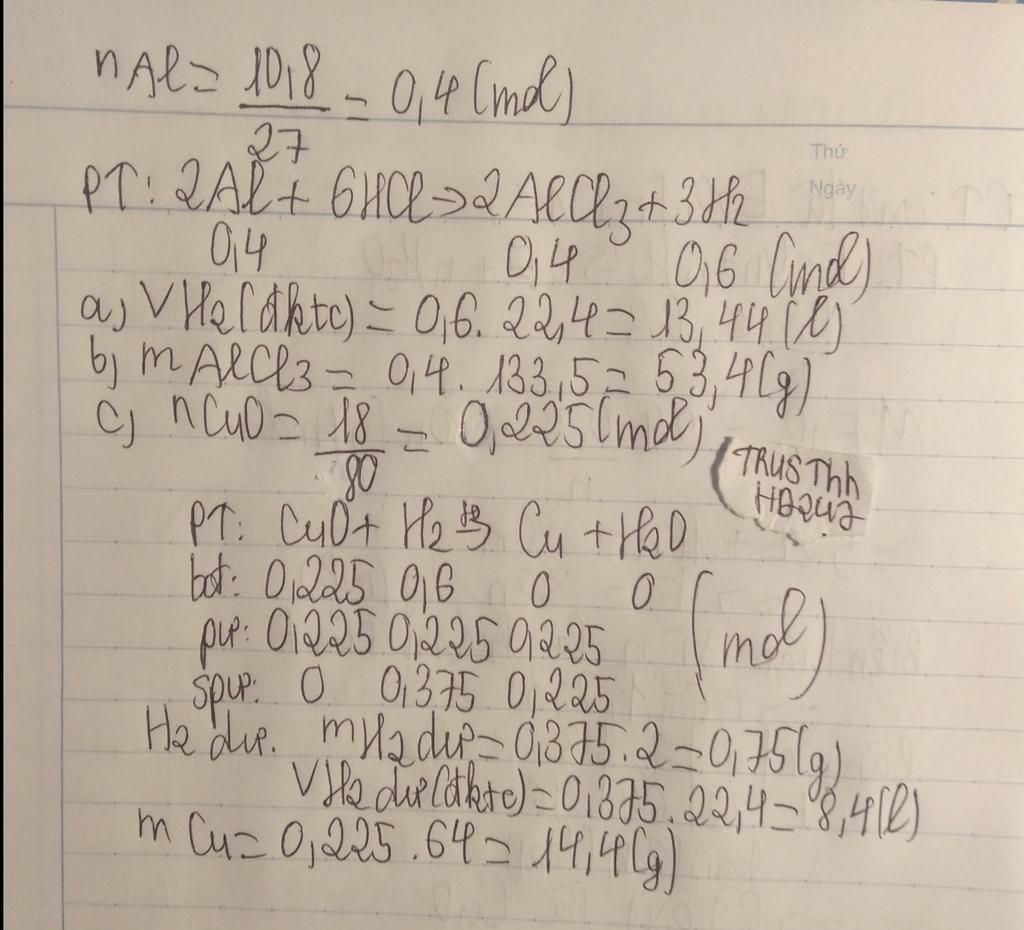 nAl = 10,8/27 = 0,4 (mol)
Thứ
Ngày
PT: 2Al + 6HCl → 2AlCl3 + 3H2
0,4 0,4 0,6 (mol)
a) VH2(đktc) = 0,6. 22,4 = 13,44 (l)
b) mAlCl3 = 0,4. 133,5 = 53,4 (g)
c) nCuO = 18/80 = 0,225 (mol)
TRUSThh
HD247
PT: CuO + H2 → Cu + H2O
bđ: 0,225 0,6 0 0
pư: 0,225 0,225 0,225 (mol)
spư: 0 0,375 0,225
H2 dư. mH2 dư = 0,375.2 = 0,75 (g)
VH2 dư(đktc) = 0,375.22,4 = 8,4 (l)
mCu = 0,225.64 = 14,4 (g)